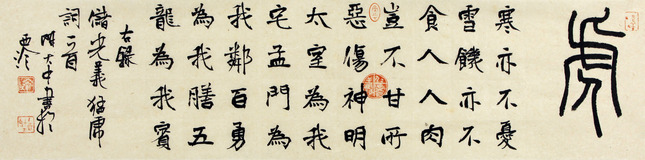 虎
寒亦不憂
雪饑亦不
食人人肉
豈不甘所
惡傷神明
太室為我
宅孟門為
我鄰百勇
為我膳五
龍為我賓
右錄
儲光羲猛虎
詞一首
大中書於
西泠